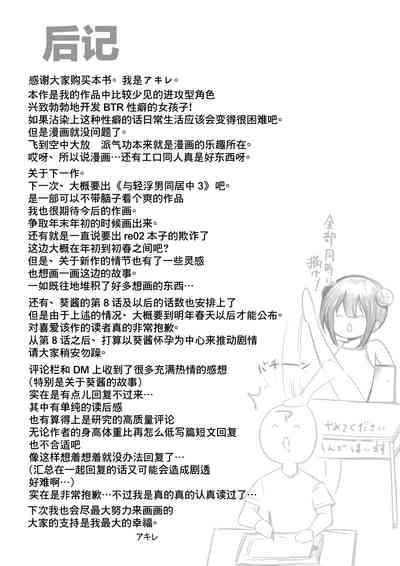 后记
感谢大家购买本书。我是アキレ。
本作是我的作品中比较少见的进攻型角色
兴致勃勃地开发 BTR 性癖的女孩子!
如果沾染上这种性癖的话日常生活应该会变得很困难吧。
但是漫画就没问题了。
飞到空中大放 派气功本来就是漫画的乐趣所在。
哎呀、所以说漫画…还有工口同人真是好东西呀。
关于下一作。
下一次、大概要出《与轻浮男同居中 3》吧。
是一部可以不带脑子看个爽的作品
我也很期待今后的作画。
争取年末年初的时候画出来。
还有就是一直说要出 re02 本子的欺诈了
这边大概在年初到初春之间吧?
但是、关于新作的情节也有了一些灵感
也想画一画这边的故事。
一如既往地堆积了好多想画的东西…
还有、葵酱的第 8 话及以后的话数也安排上了
但是由于上述的情况、大概要到明年春天以后才能公布。
对喜爱该作的读者真的非常抱歉。
从第 8 话之后、打算以葵酱怀孕为中心来推动剧情
请大家稍安勿躁。
评论栏和 DM 上收到了很多充满热情的感想
(特别是关于葵酱的故事)
实在是有点儿回复不过来…
其中有单纯的读后感
也有算得上是研究的高质量评论
无论作者的身高体重比再怎么低写篇短文回复
也不合适吧
像这样想着想着就没办法回复了…
(汇总在一起回复的话又可能会造成剧透
好难啊…)
实在是非常抱歉…不过我是真的是真的认真读过了…
下次我也会尽最大努力来画画的
大家的支持是我最大的幸福。
アキレ
全部同時に
描け!
バチーン
ア
やめてください
しんでしまいます